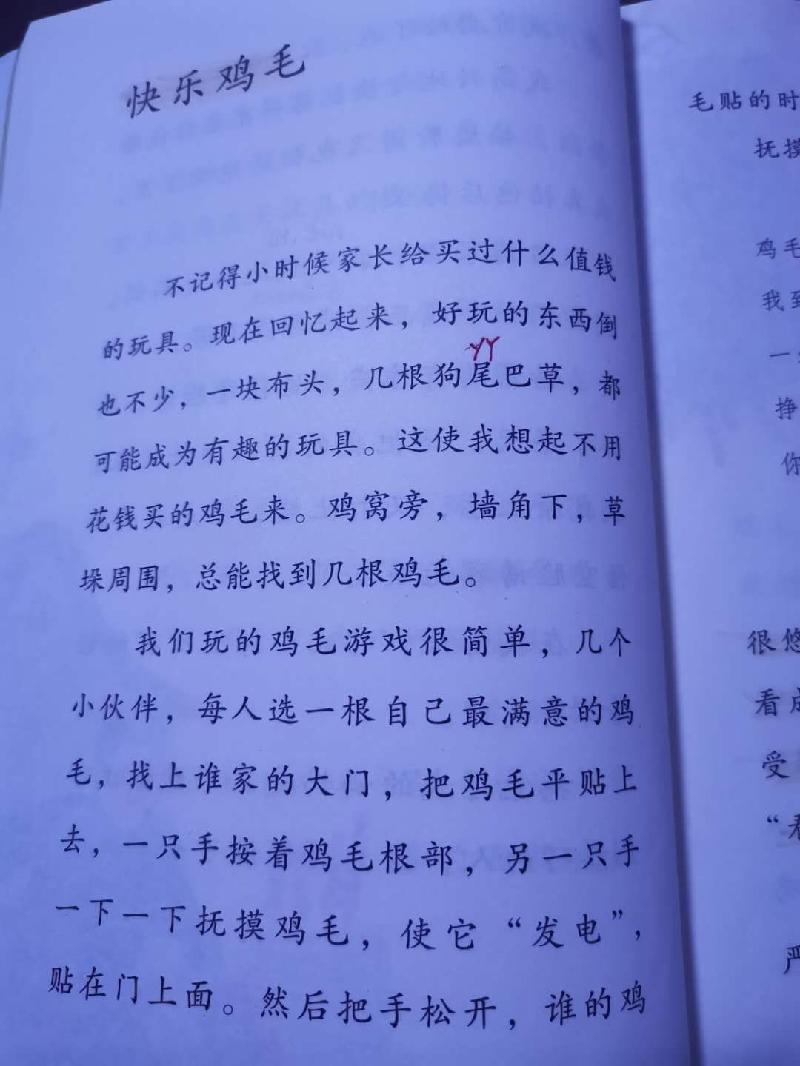 快乐鸡毛
不记得小时候家长给买过什么值钱
的玩具。现在回忆起来，好玩的东西倒
YY
也不少，一块布头，几根狗尾巴草，都
可能成为有趣的玩具。这使我想起不用
花钱买的鸡毛来。鸡窝旁，墙角下，草
垛周围，总能找到几根鸡毛。
我们玩的鸡毛游戏很简单，几个
小伙伴，每人选一根自己最满意的鸡
毛，找上谁家的大门，把鸡毛平贴上
去，一只手按着鸡毛根部，另一只手
一下一下抚摸鸡毛，使它“发电”，
贴在门上面。然后把手松开，谁的鸡
毛贴的时
抚摸
鸡毛
我到
一
挣
你
很悠
看成
受
“看
严